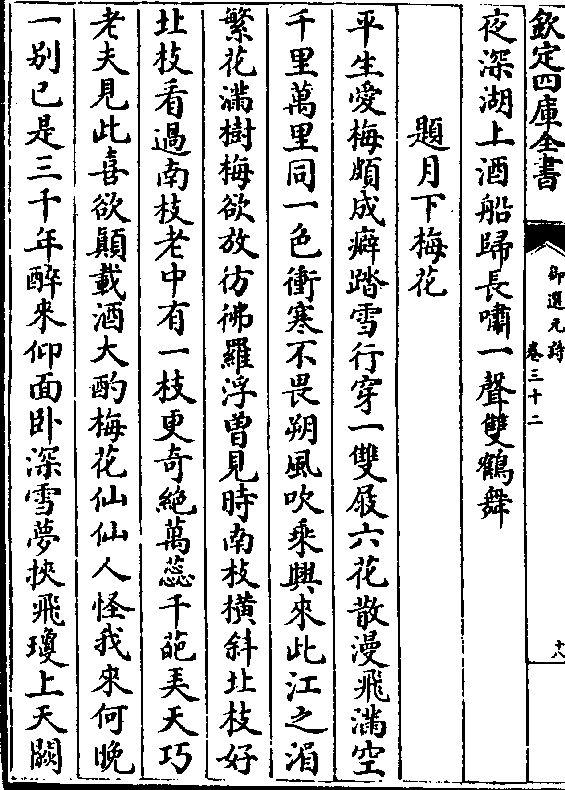 欽定四庫全書
御選元詩
卷三十二
十八
夜深湖上酒船歸長嘯一聲雙鶴舞
題月下梅花
平生愛梅頗成癖踏雪行穿一雙屐六花散漫飛滿空
千里萬里同一色衝寒不畏朔風吹乘興來此江之湄
繁花滿樹梅欲放彷彿羅浮曽見時南枝橫斜北枝好
北枝看過南枝老中有一枝更奇絶萬蕊千葩美天巧
老夫見此喜欲顛載酒大酌梅花仙仙人怪我來何晚
一别已是三千年醉來仰面卧深雪夢挾飛瓊上天闕